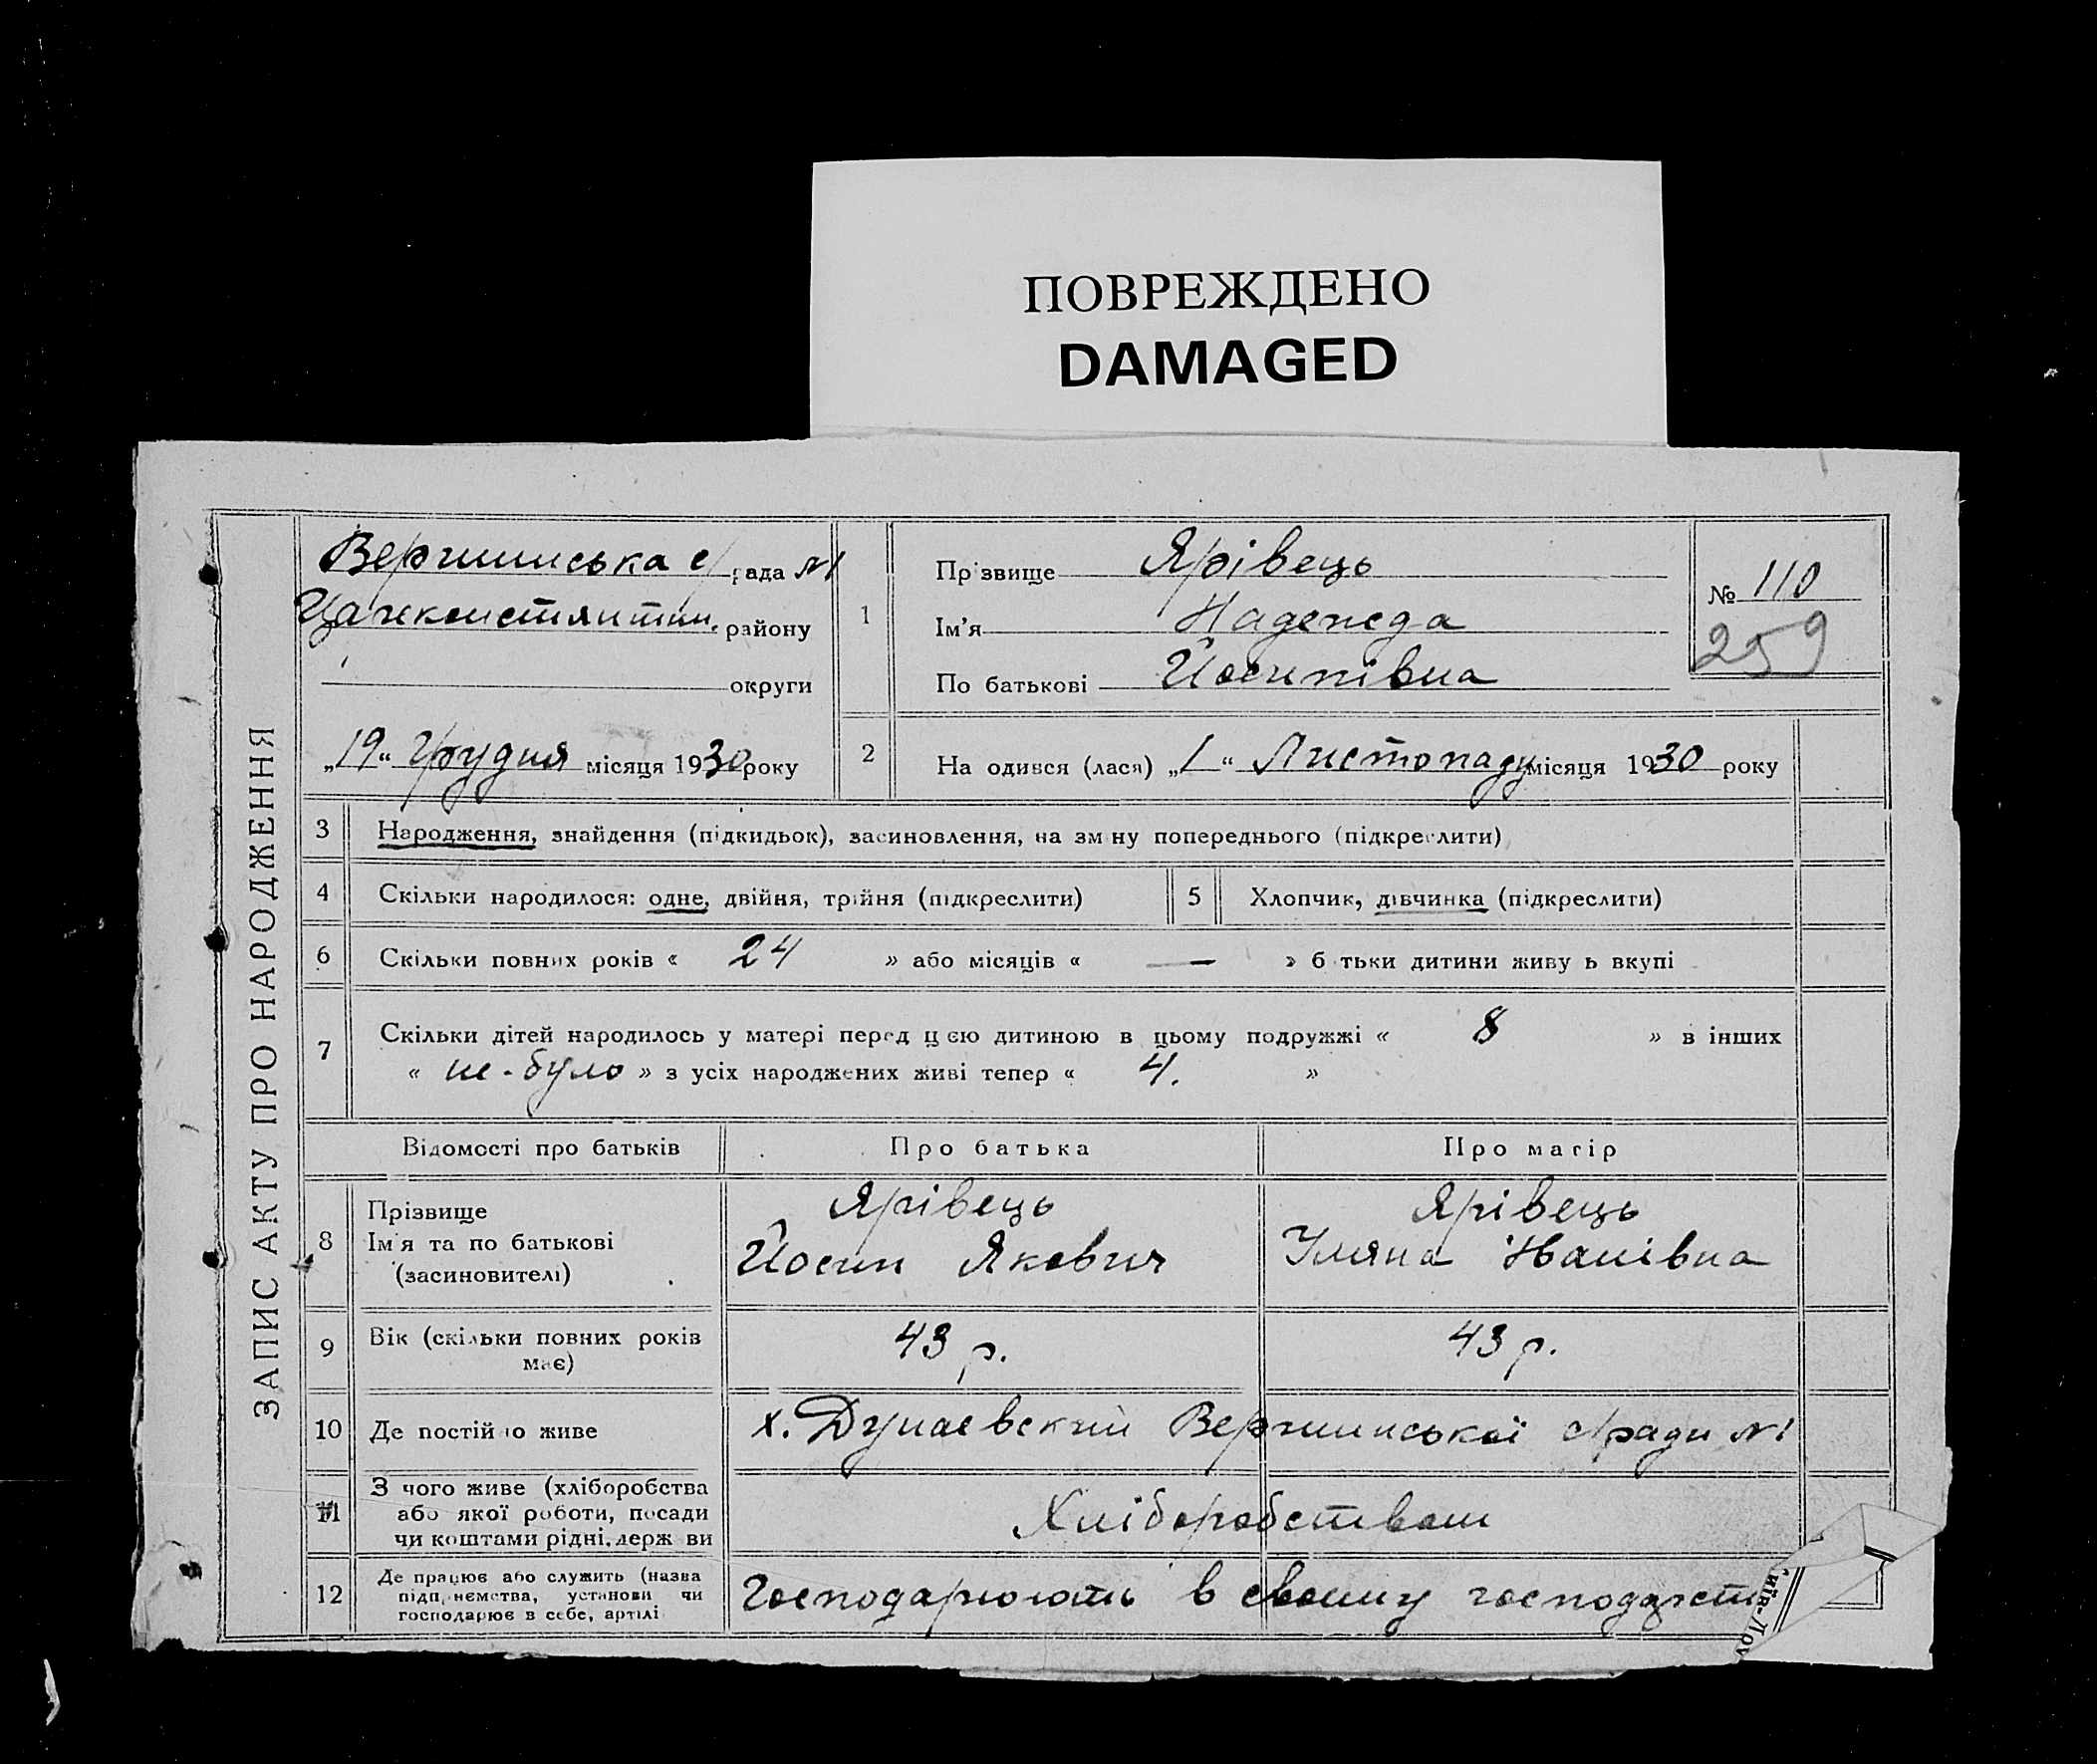 ПОВРЕЖДЕНО
DAMAGED
ЗАПИС АКТУ ПРО НАРОДЖЕННЯ
Вершинська с/рада №1
району
округи
„19“ Грудня місяця 1930 року
1
Прізвище Ярівець
Ім’я Надежда
По батькові Йосипівна
№ 110
259
2
На одився (лася) „1“ Листопаду місяця 1930 року
3 Народження, знайдення (підкидьок), засиновлення, на зм ну попереднього (підкреслити)
4 Скільки народилося: одне, двійня, трійня (підкреслити)
5 Хлопчик, дівчинка (підкреслити)
6 Скільки повних років « 24 » або місяців « — » б тьки дитини живу ь вкупі
7 Скільки дітей народилось у матері перед цєю дитиною в цьому подружжі « 8 » в інших
« не-було » з усіх народжених живі тепер « 4. »
Відомості про батьків
Про батька
Про матір
8 Прізвище
Ім’я та по батькові
(засиновителі)
Ярівець
Йосип Якович
Ярівець
Уляна Іванівна
9 Вік (скільки повних років
має)
43 р.
43 р.
10 Де постійно живе
х. Дунаевский Вершинської с/ради №1
11 З чого живе (хліборобства
або якої роботи, посади
чи коштами рідні, держ ви
Хліборобством
12 Де працює або служить (назва
підприємства, установи чи
господарює в себе, артілі
Господарюють в своєму